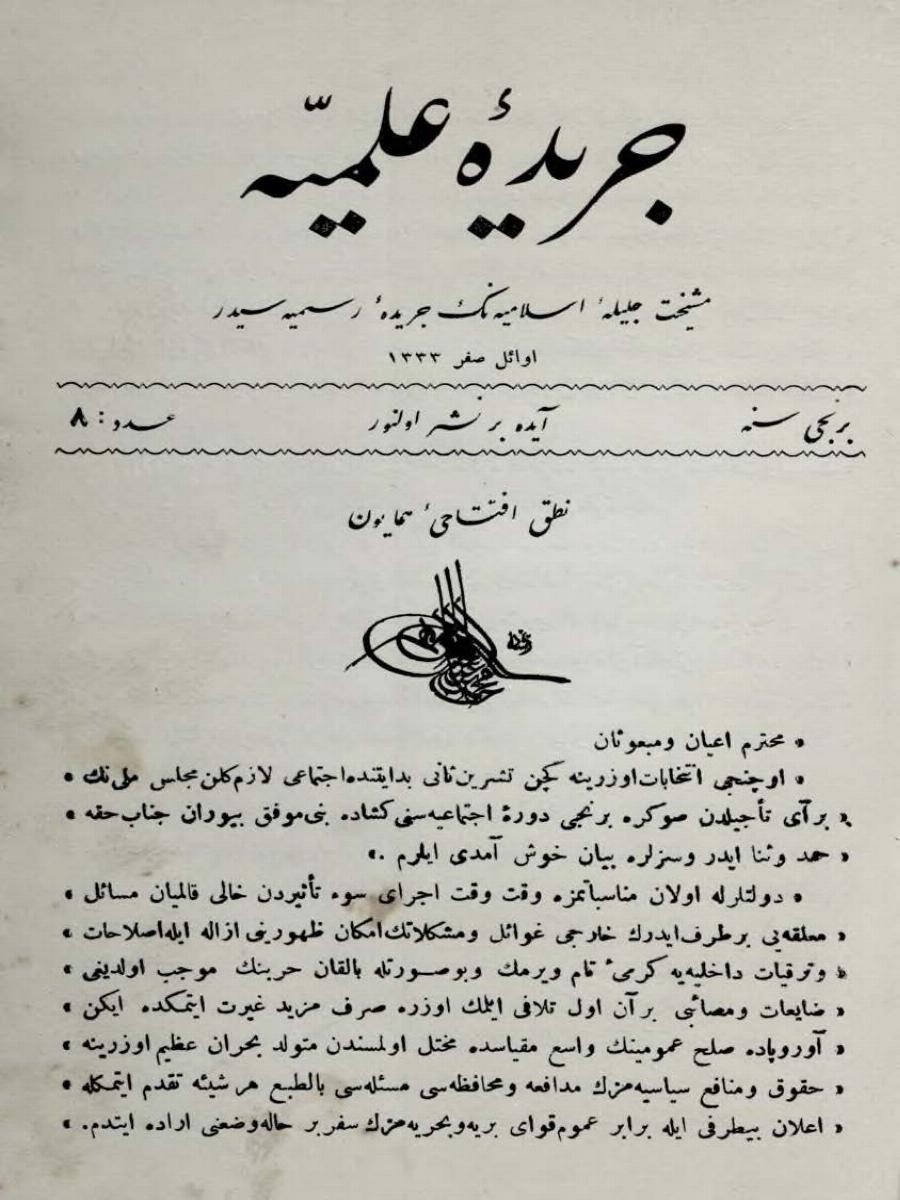 جریدۀ علمیّه
مشیخت جلیلۀ اسلامیه‌نك جریدۀ رسمیه سیدر
اوائل صفر ١٣٣٣
برنجی سنه
آیده بر نشر اولنور
عدد : ٨
نطق افتتاحیٔ همایون
« محترم اعیان ومبعوثان
« اوچنجی انتخابات اوزرینه کچن تشرین ثانی بدایتنده اجتماعی لازم کلن مجلس ملی نك »
« بر آی تأجیلدن صوکره برنجی دورۀ اجتماعیه سنی کشاده بنی موفق بیوران جناب حقه »
« حمد وثنا ایدر وسزلره بیان خوش آمدی ایلرم .»
« دولتلرله اولان مناسباتمزه وقت وقت اجرای سوء تأثیردن خالی قالمیان مسائل »
« معلقه یی برطرف ایدرك خارجی غوائل ومشکلاتك امکان ظهورینی ازاله ایله اصلاحات »
« وترقیات داخلیه یه کرمیٔ تام ویرمك وبوصورتله بالقان حربنك موجب اولدیغی »
« ضایعات ومصائبی بر آن اول تلافی ایلمك اوزره صرف مزید غیرت ایتمکده ایکن »
« آوروپاده صلح عمومینك واسع مقیاسده مختل اولمسندن متولد بحران عظیم اوزرینه »
« حقوق ومنافع سیاسیه مزك مدافعه ومحافظه سی مسئله سی بالطبع هر شیئه تقدم ایتمکله »
« اعلان بیطرفی ایله برابر عموم قوای بریه وبحریه مزك سفربر حاله وضعنی اراده ایتدم. »